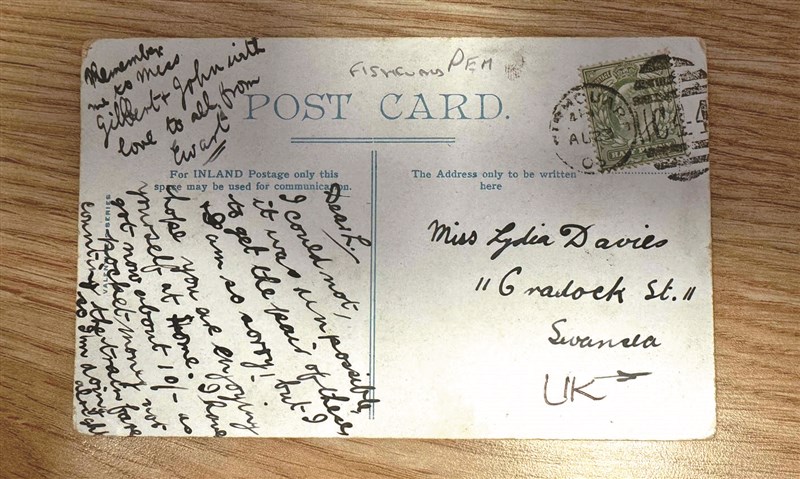 Remember
me to Miss
Gilbert & John with
love to all from
Ewart
FISHGUARD PEM
POST CARD.
For INLAND Postage only this
space may be used for communication.
The Address only to be written
here
Dear L.
I could not,
it was impossible,
to get the pair of these
I am so sorry! but I
hope you are enjoying
yourself at home. I have
got now about 10/- as
pocket-money not
counting the train fare
so I'm doing
alright
Miss Lydia Davies
"Cradock St."
Swansea
UK
SERIES